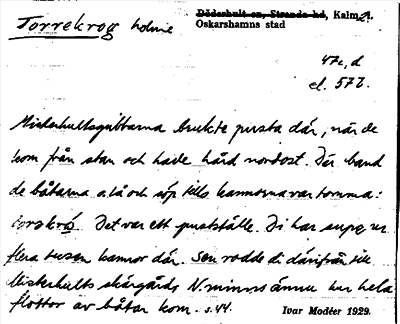 Torrekrog holme
Döderhult sn, Stranda hd, Kalm. l.
Oskarshamns stad
47c, d
el. 57b.
Misterhultsgubbarna brukte pusta där, när de
kom från stan och hade hård nordost. Där band
de båtarna o. lå och söp tills kannorna var tomma:
torrkró. Det var ett pustställe. Di har supe ur
flera tusen kannor där. Sen rodde di därifrån till
Misterhults skärgård. N minns ännu hur hela
flottor av båtar kom. s. 44.
Ivar Modéer 1929.